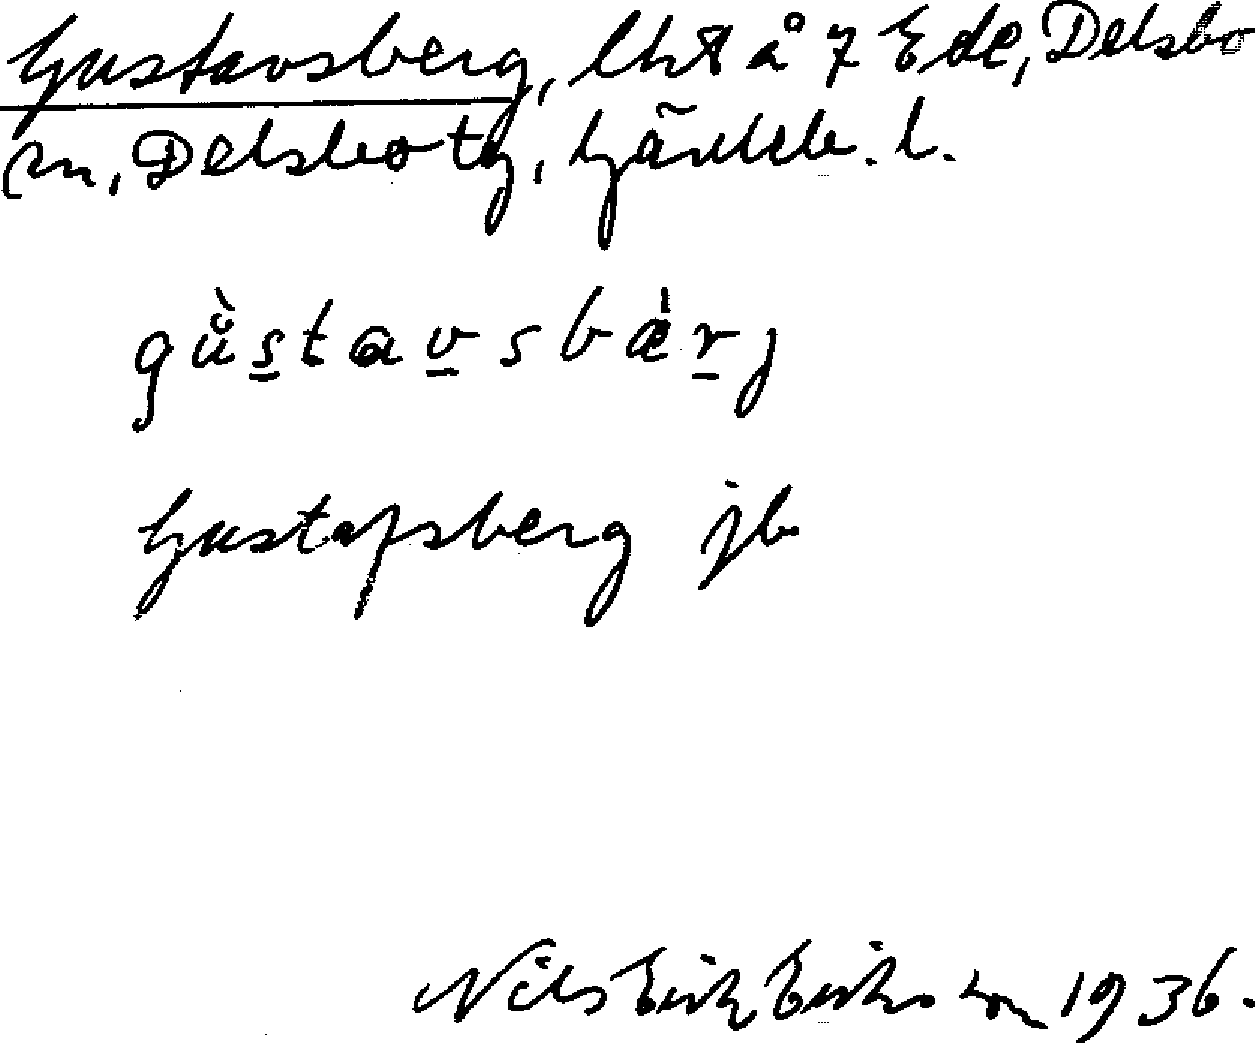 Gustavsberg, lht å 7 Ede, Delsbo
sn, Delsbo tg, Gävleb. l.
gùstavsbærj
Gustafsberg jb
Nils Erik Eriksson 1936.